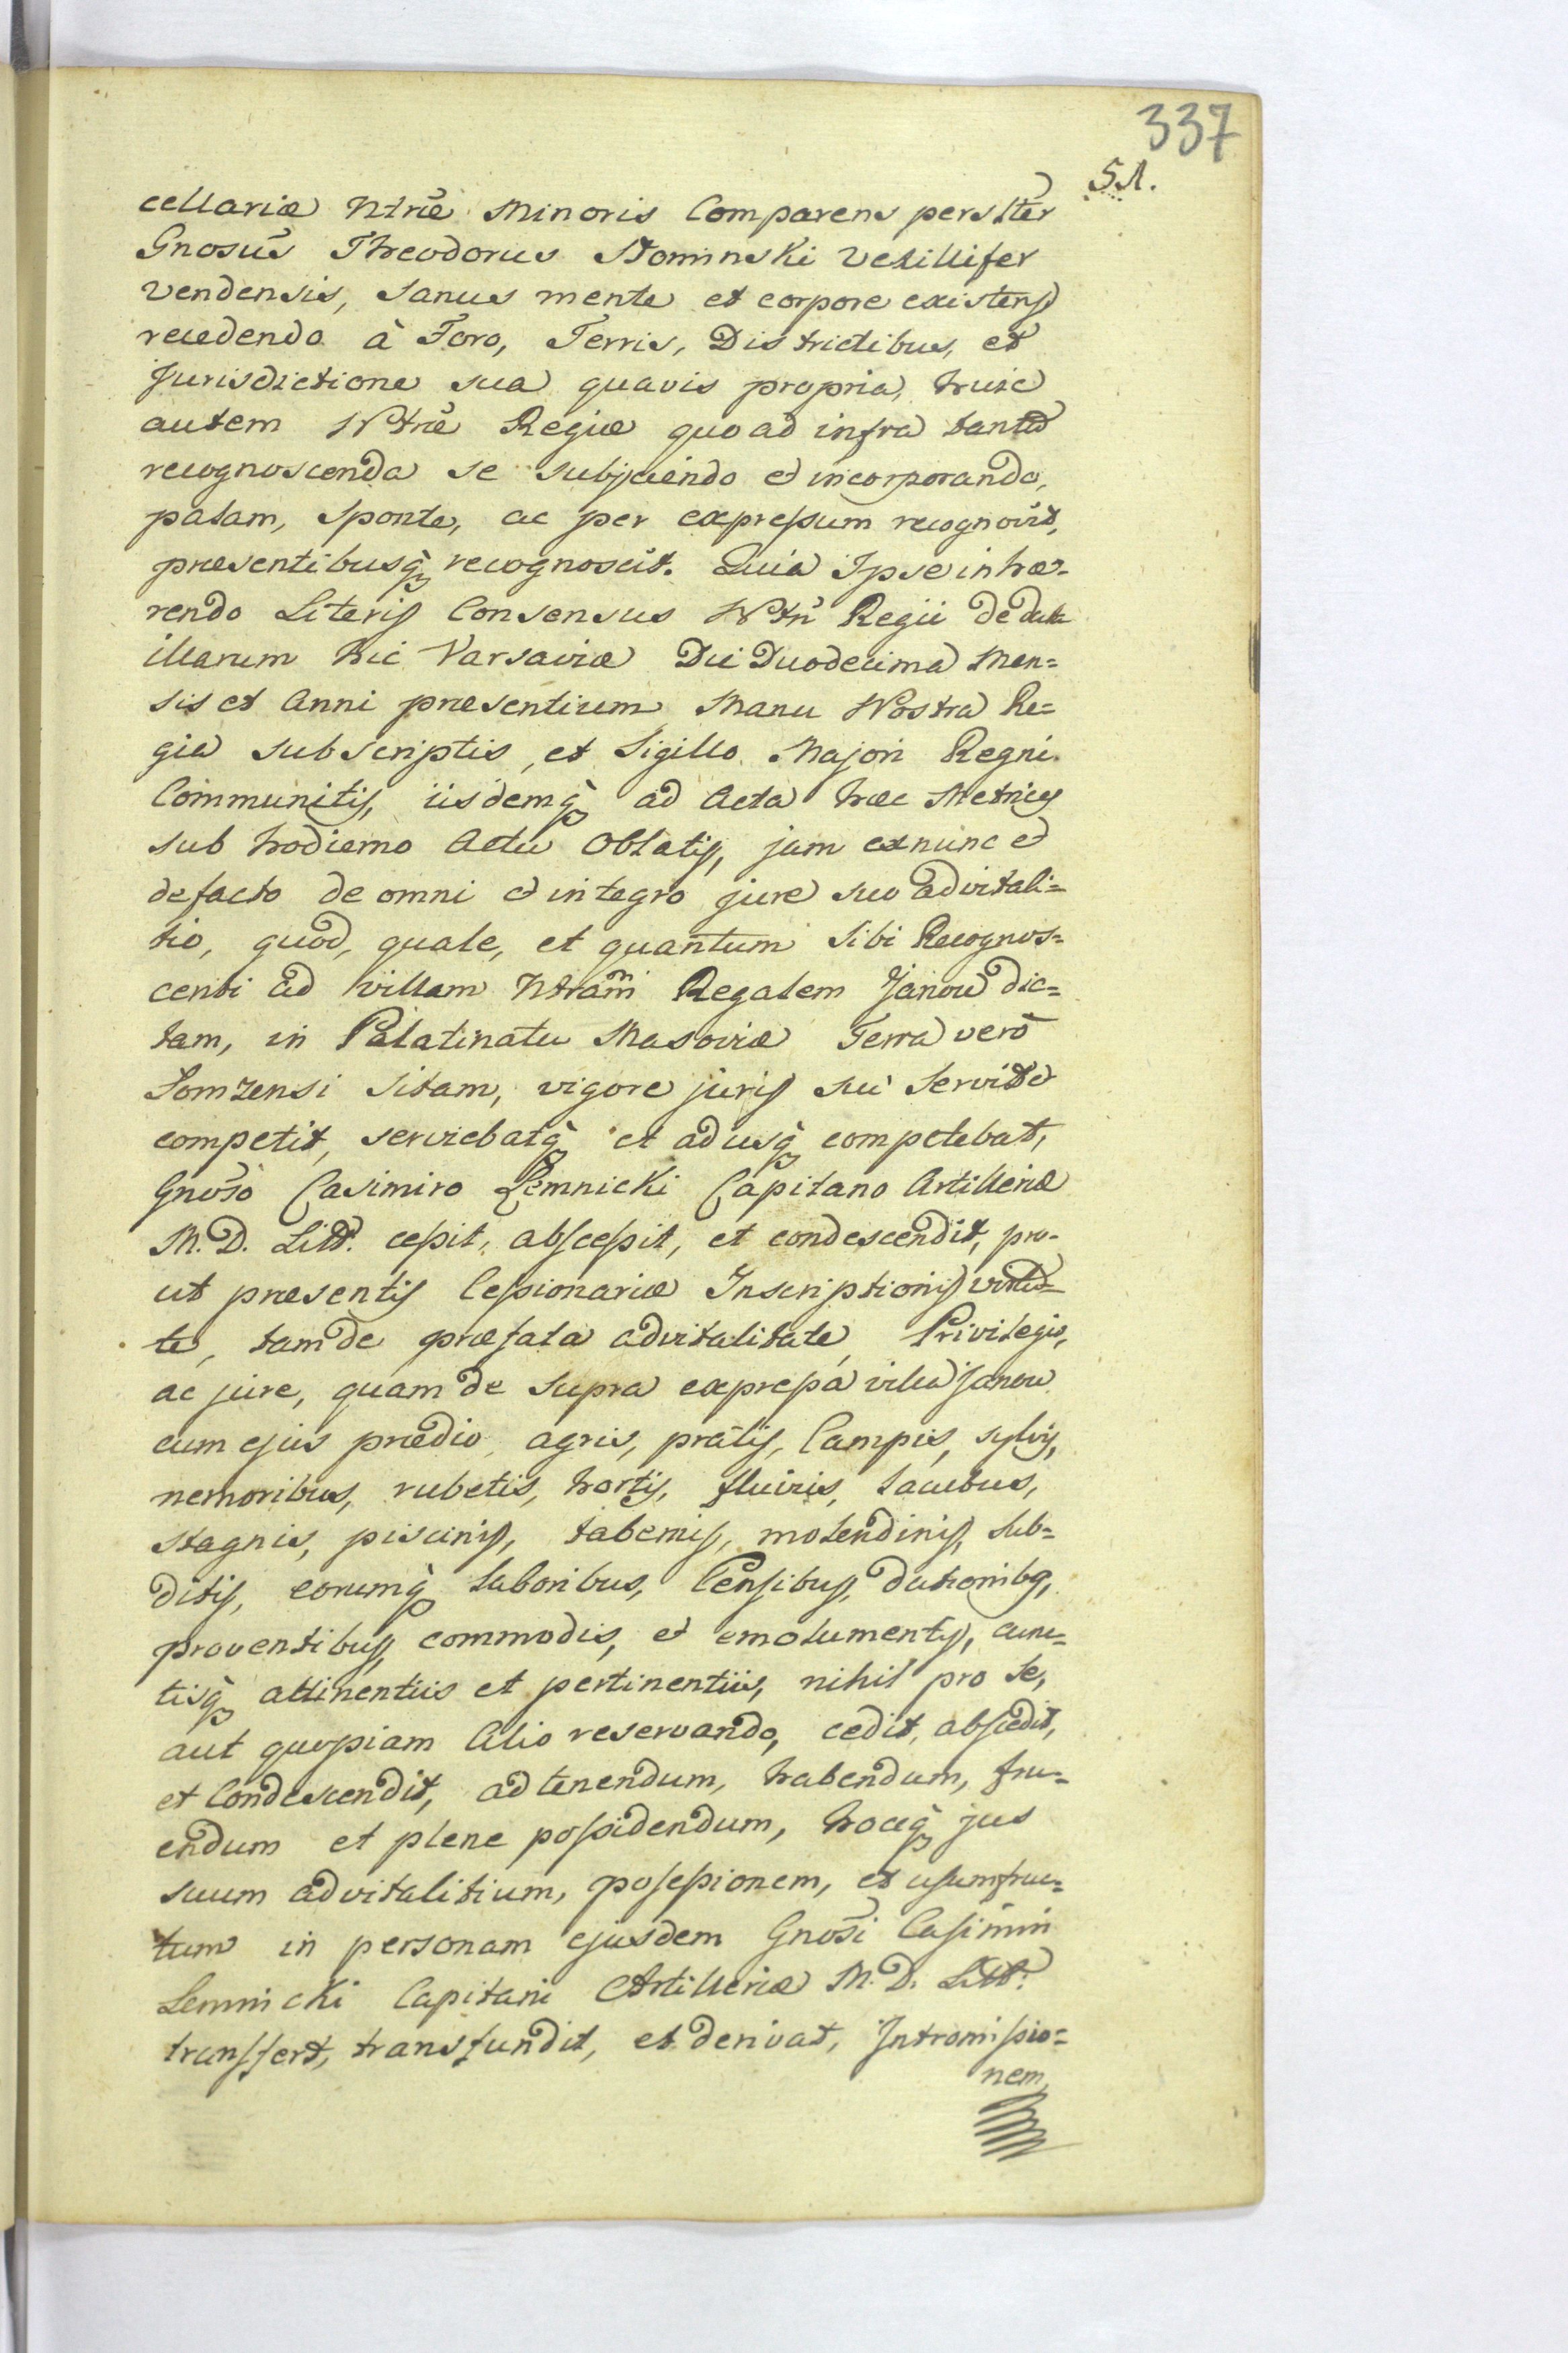 337
S.A.
cellariæ Ntræ Minoris Comparens persltēr
Gnosus Theodorus Słominski Vexillifer
Vendensis, sanus mente et corpore existens
recedendo à Foro, Terris, Districtibus, et
Jurisdictione sua quavis propria, huic
autem Ntræ Regiæ quo ad infra tantū
recognoscenda se subjiciendo et incorporando,
palam, sponte, ac per expressum recognovit,
præsentibusq̀ recognoscit. Quia Ipse inhæ-
rendo Literis Consensus Ntri Regii de data
illarum hic Varsaviæ Die Duodecima Men=
sis et Anni præsentium Manu Nostra Re=
gia subscriptis, et Sigillo Majori Regni
Communitis, iisdemq̀ ad Acta hæc Metrices
sub hodierno Actu Oblatis, jam ex nunc et
de facto de omni et integro jure suo advitali=
tio, quod, quale, et quantum sibi Recognos=
centi ad Villam Ntram Regalem Janow dic=
tam, in Palatinatu Masoviæ Terra verò
Lomzensi sitam, vigore juris sui servit et
competit, serviebatq̀ et ad usq̀ competebat,
Gnoso Casimiro Lemnicki Capitano Artilleriæ
M. D. Litt. cessit, abscessit, et condescendit, pro-
ut præsentis Cessionariæ Inscriptionis virtu=
te, tam de præfata advitalitate, Privilegio,
ac jure, quam de supra expressa villa Janow
cum ejus prædio, agris, pratis, Campis, sylvis,
nemoribus, rubetis, hortis, fluviis, lacubus,
stagnis, piscinis, tabernis, molendinis, sub=
ditis, eorumq̀ laboribus, Censibus, dationibq,
proventibus, commodis, et emolumentis, cunc=
tisq̀ attinentiis et pertinentiis, nihil pro se,
aut quopiam Alio reservando, cedit, abscedit,
et Condescendit, ad tenendum, habendum, fru=
endum et plene possidendum, hocq̀ jus
suum advitalitium, possessionem, et usumfruc=
tum in personam ejusdem Gnosi Casimiri
Lemnicki Capitani Artilleriæ M. D. Litt.
transfert, transfundit, et derivat, Intromissio=
nem